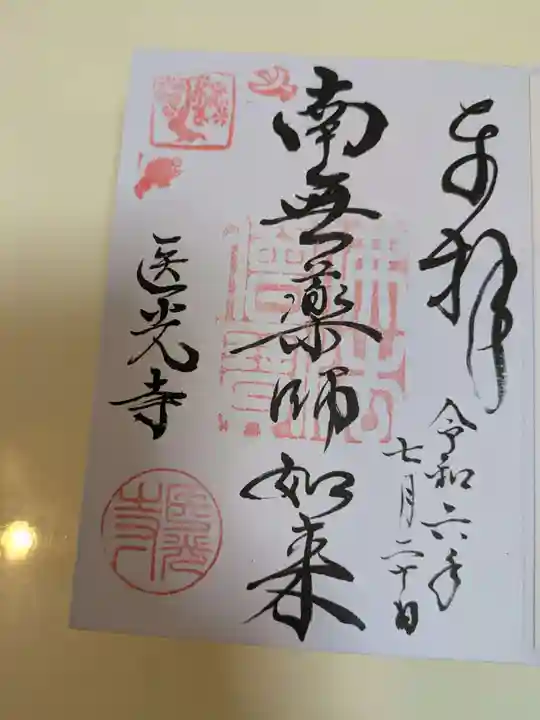 奉拝
令和六年
七月二十日
南無薬師如来
医光寺